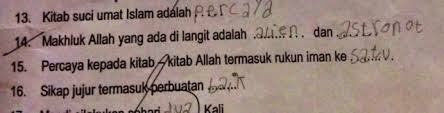 13. Kitab suci umat Islam adalah percaya
14. Makhluk Allah yang ada di langit adalah .alien. . dan .astronot
15. Percaya kepada kitab-kitab Allah termasuk rukun iman ke satu.
16. Sikap jujur termasuk perbuatan baik
sehari dua) Kali